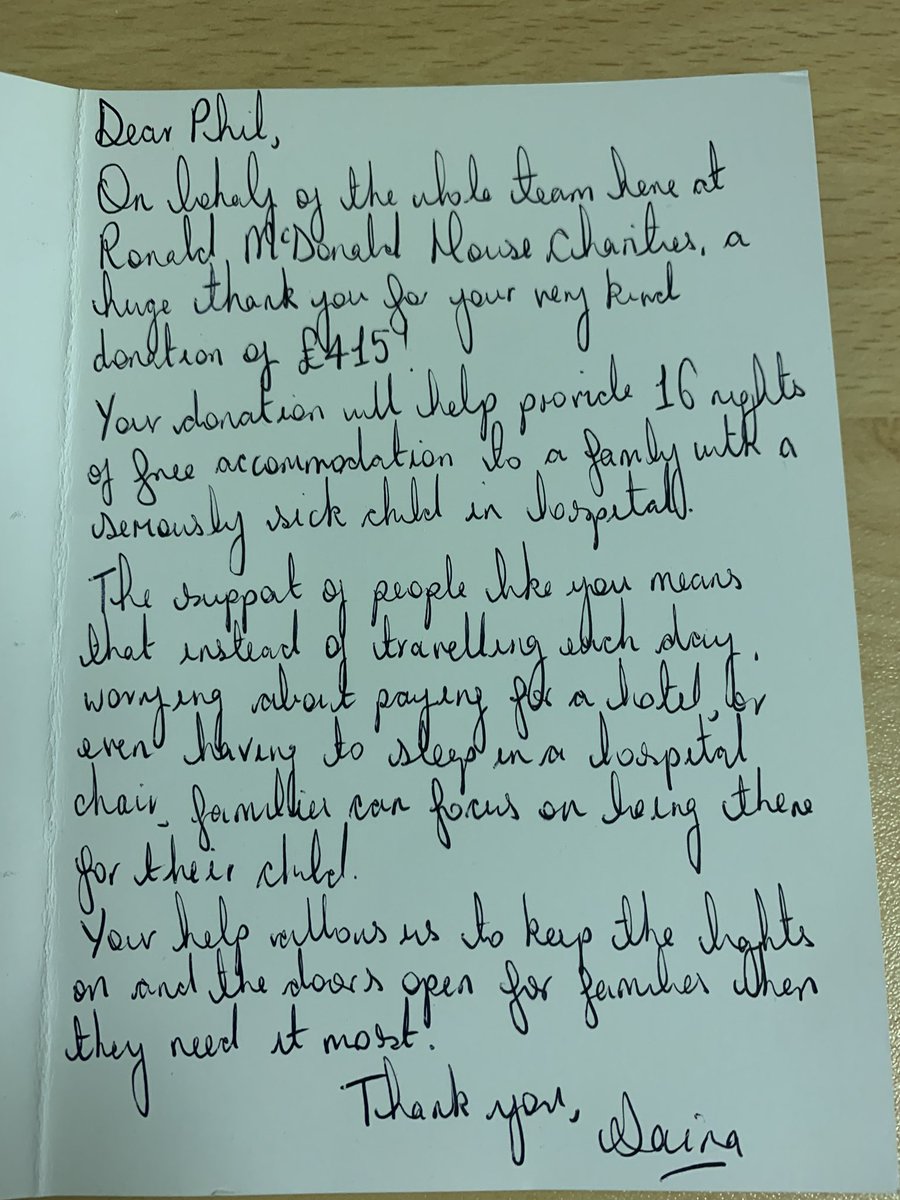 Dear Phil,
On behalf of the whole team here at
Ronald McDonald House Charities, a
huge thank you for your very kind
donation of £415!
Your donation will help provide 16 nights
of free accommodation to a family with a
seriously sick child in hospital.
The support of people like you means
that instead of travelling each day,
worrying about paying for a hotel, or
even having to sleep in a hospital
chair, families can focus on being there
for their child.
Your help allows us to keep the lights
on and the doors open for families when
they need it most.
Thank you,
Saira